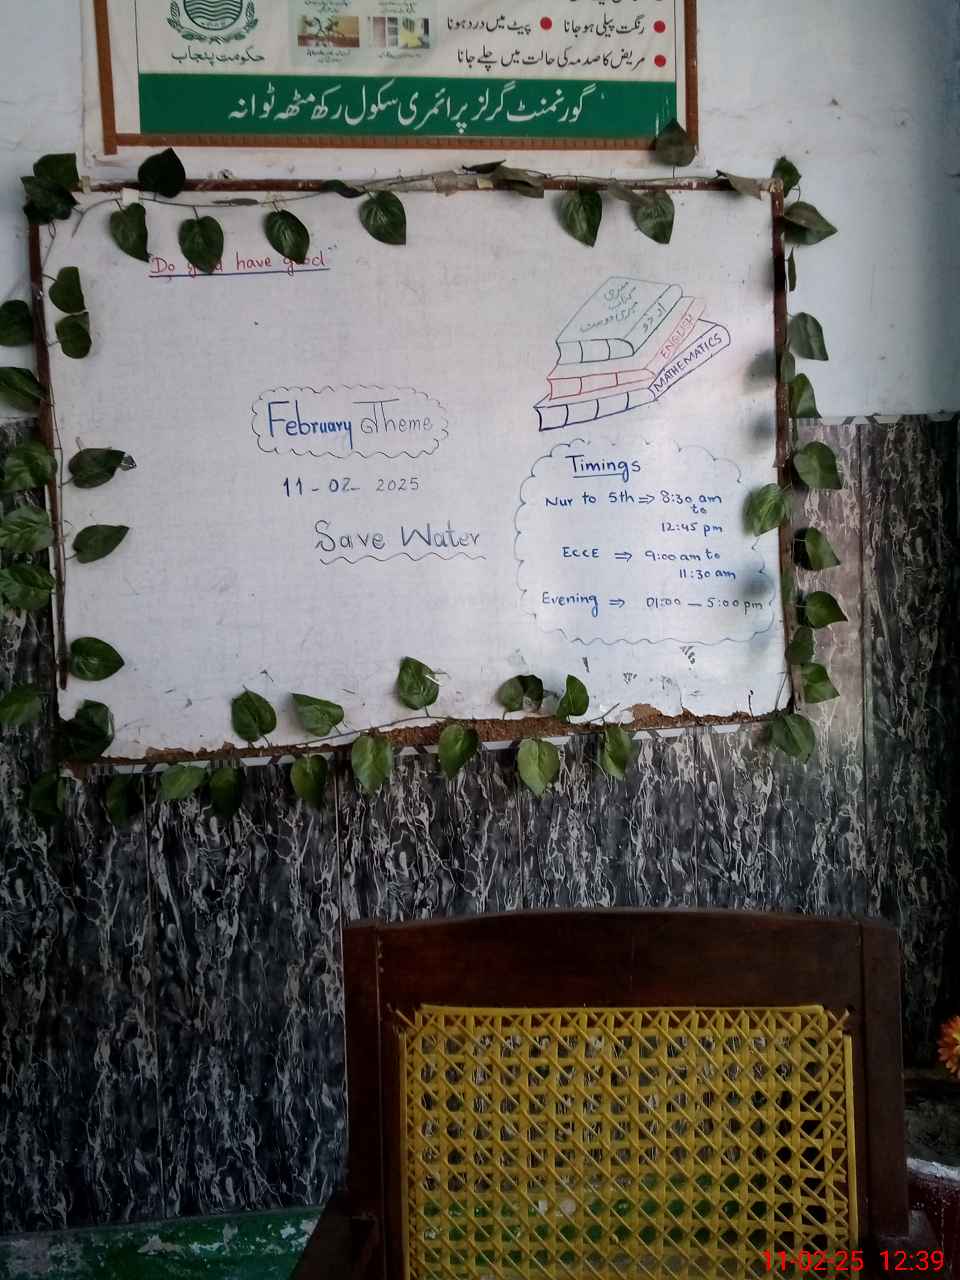 رنگت پیلی ہو جانا
پیٹ میں درد ہونا
مریض کا صدمہ کی حالت میں چلے جانا
حکومت پنجاب
گورنمنٹ گرلز پرائمری سکول رکھ مٹھہ ٹوانہ
"Do good have good"
میری
کتاب
میری دوست
اردو
ENGLISH
MATHEMATICS
February Theme
11-02-2025
Save Water
Timings
Nur to 5th ⇒ 8:30 am
to
12:45 pm
ECCE ⇒ 9:00 am to
11:30 am
Evening ⇒ 01:00 — 5:00 pm
11-02-25 12:39